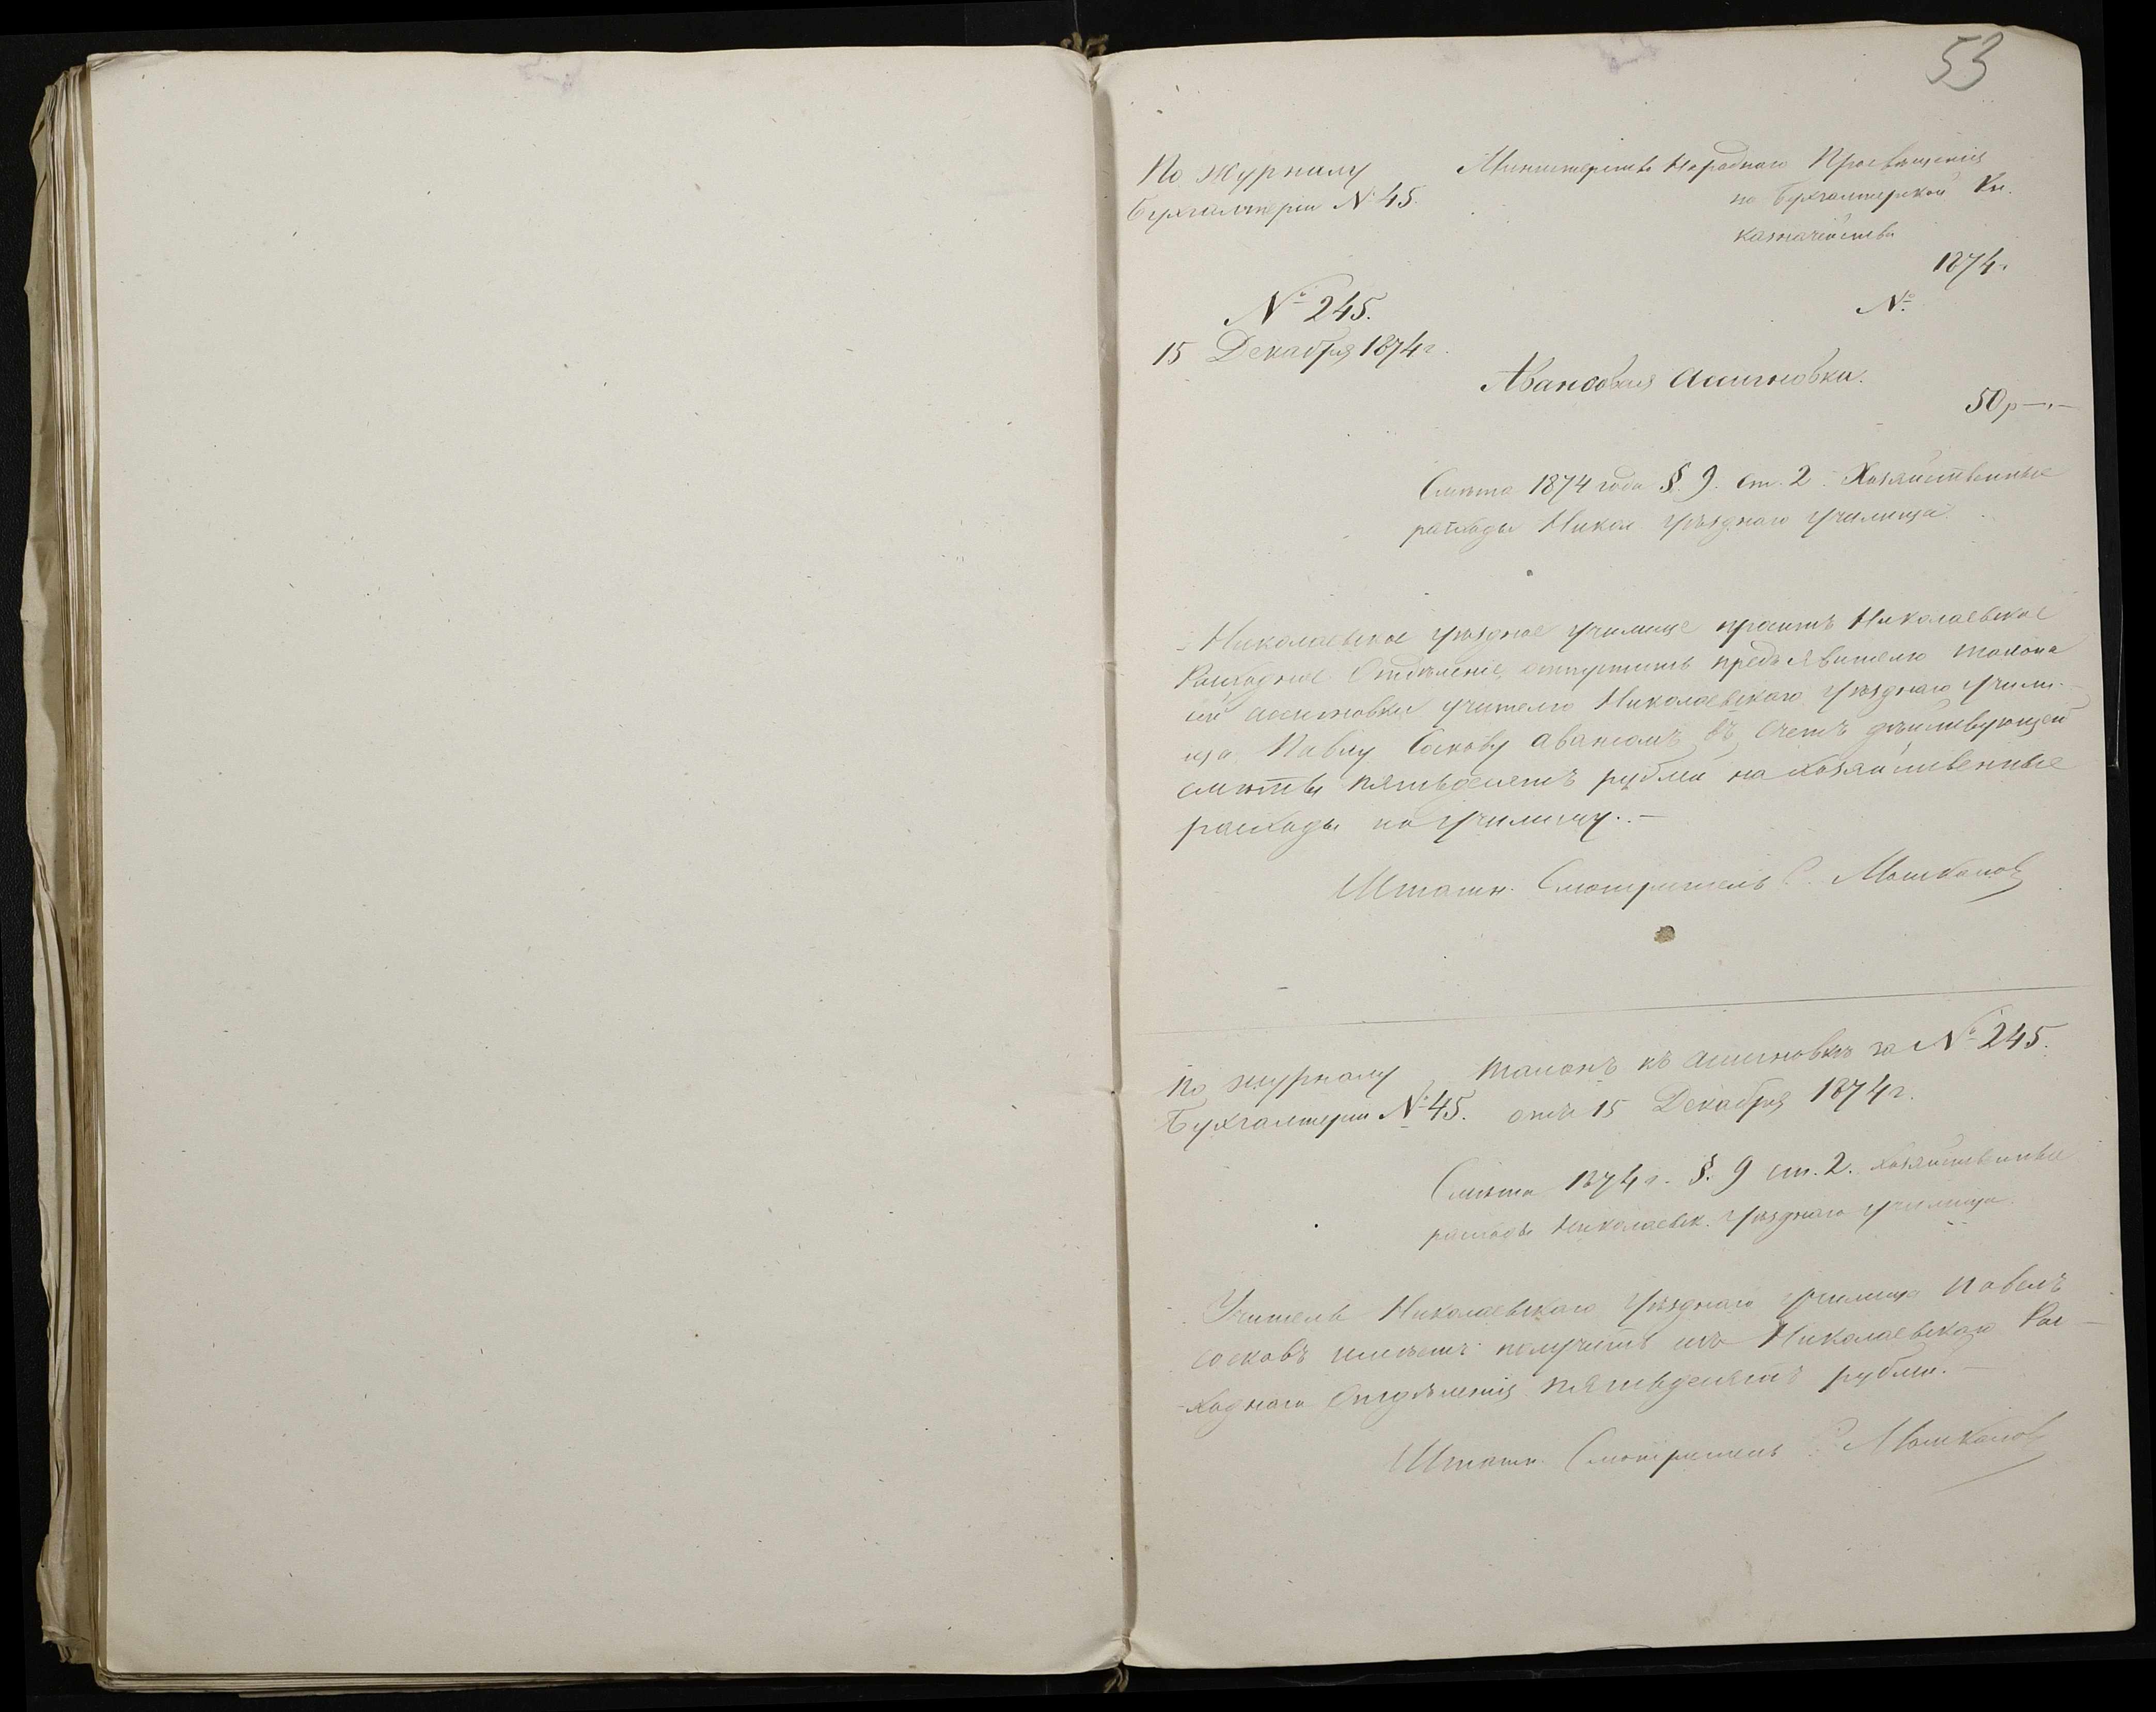 53
По журналу
Бухгалтеріи № 45.
Министерство Народнаго Просвѣщенія
по бухгалтерской кн.
казначейства
1874 г.
№
№ 245.
15 Декабря 1874 г.
Авансовая ассигновка.
50 р — " —
Смѣта 1874 года § 9. ст. 2. Хозяйственные
расходы Никол уѣзднаго училища.
Николаевское уѣздное училище проситъ Николаевское
Расходное Отдѣленіе отпустить предъявителю талона
сей ассигновки учителю Николаевскаго уѣзднаго учили-
ща Павлу Соскову авансомъ въ счетъ дѣйствующей
смѣты пятьдесятъ рублей на хозяйственные
расходы по училищу. —
Штатн. Смотритель С. Машкановъ
По журналу
Бухгалтеріи № 45.
Талонъ къ ассигновкѣ за № 245.
отъ 15 Декабря 1874 г.
Смѣта 1874 г. §. 9 ст. 2. хозяйственные
расходы Николаевск. уѣзднаго училища.
Учитель Николаевскаго уѣзднаго училища Павелъ
Сосковъ имѣетъ получить изъ Николаевскаго Рас-
ходнаго Отдѣленія пятьдесятъ рублей. —
Штатн. Смотритель С. Машкановъ